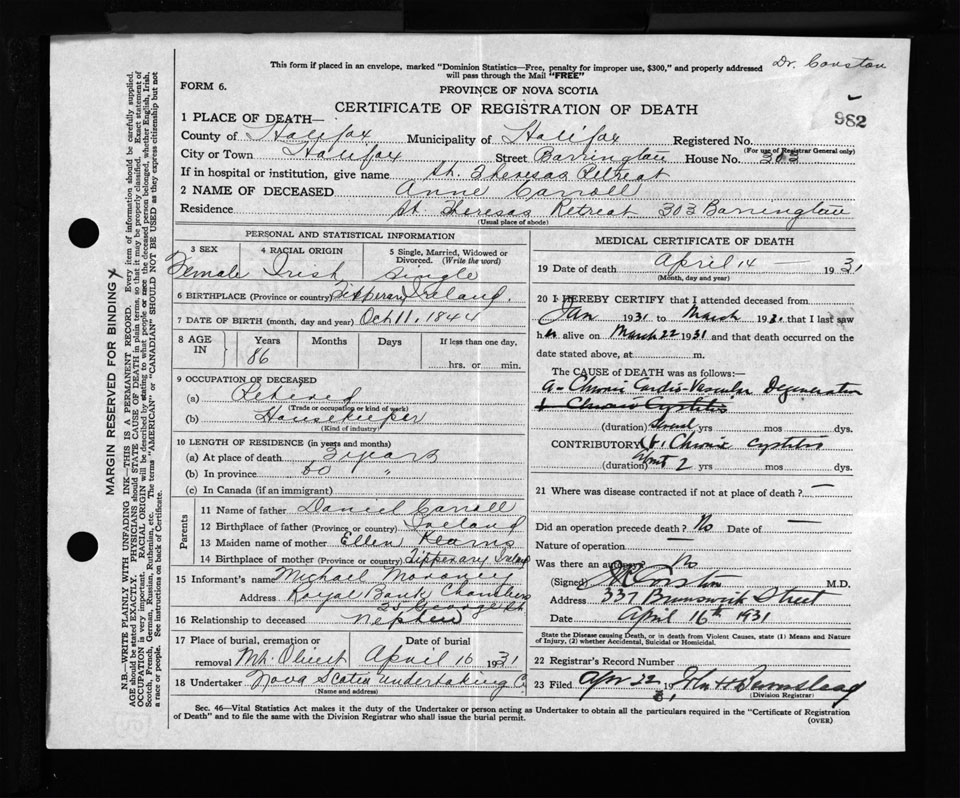 This form if placed in an envelope, marked "Dominion Statistics—Free, penalty for improper use, $300," and properly addressed
will pass through the Mail "FREE"
FORM 6.
PROVINCE OF NOVA SCOTIA
CERTIFICATE OF REGISTRATION OF DEATH
982
1 PLACE OF DEATH—
County of Halifax Municipality of Halifax Registered No.
(For use of Registrar General only)
City or Town Halifax Street Barrington House No. 303
If in hospital or institution, give name St. Theresas Retreat
2 NAME OF DECEASED Anne Carroll
Residence St. Theresas Retreat 303 Barrington
(Usual place of abode)
PERSONAL AND STATISTICAL INFORMATION
3 SEX 4 RACIAL ORIGIN 5 Single, Married, Widowed or
Divorced. (Write the word)
Female Irish Single
6 BIRTHPLACE (Province or country) Tipperary Ireland.
7 DATE OF BIRTH (month, day and year) Oct 11. 1844
8 AGE IN Years Months Days If less than one day,
86 hrs. or min.
9 OCCUPATION OF DECEASED
(a) Retired
(Trade or occupation or kind of work)
(b) Housekeeper
(Kind of industry)
10 LENGTH OF RESIDENCE (in years and months)
(a) At place of death 3 years
(b) In province 50 "
(c) In Canada (if an immigrant)
Parents
11 Name of father Daniel Carroll
12 Birthplace of father (Province or country) Ireland
13 Maiden name of mother Ellen Kearns
14 Birthplace of mother (Province or country) Tipperary Ireland
15 Informant's name Michael Moroney
Address Royal Bank Chambers
35 George St
16 Relationship to deceased nephew
17 Place of burial, cremation or Date of burial
removal Mt. Olivet April 16 1931
18 Undertaker Nova Scotia Undertaking Co
(Name and address)
MEDICAL CERTIFICATE OF DEATH
19 Date of death April 14 — 1931
(Month, day and year)
20 I HEREBY CERTIFY that I attended deceased from
Jan 1931 to March 1931 that I last saw
her alive on March 22 1931 and that death occurred on the
date stated above, at m.
The CAUSE of DEATH was as follows:—
a - Chronic Cardio-Vascular Degeneration
b Chronic Cystitis
(duration) Several yrs mos dys.
CONTRIBUTORY Chronic cystitis
(duration) about 2 yrs mos dys.
21 Where was disease contracted if not at place of death? —
Did an operation precede death? No Date of —
Nature of operation —
Was there an autopsy? No
(Signed) M.D.
Address 337 Brunswick Street
Date April 16th 1931
State the Disease causing Death, or in death from Violent Causes, state (1) Means and Nature
of Injury, (2) whether Accidental, Suicidal or Homicidal.
22 Registrar's Record Number
23 Filed Apr 22 1931 John H
(Division Registrar)
Sec. 46—Vital Statistics Act makes it the duty of the Undertaker or person acting as Undertaker to obtain all the particulars required in the "Certificate of Registration
of Death" and to file the same with the Division Registrar who shall issue the burial permit.
(OVER)
MARGIN RESERVED FOR BINDING
N.B.—WRITE PLAINLY WITH UNFADING INK—THIS IS A PERMANENT RECORD. Every item of information should be carefully supplied.
AGE should be stated EXACTLY. PHYSICIANS should STATE CAUSE OF DEATH in plain terms, so that it may be properly classified. Exact statement of
OCCUPATION is very important. RACIAL ORIGIN will be described by stating to what people or race the deceased person belonged, whether English, Irish,
Scotch, French, German, Russian, Ruthenian, etc. The terms "AMERICAN" or "CANADIAN" SHOULD NOT BE USED as they express citizenship but not
a race or people. See instructions on back of Certificate.